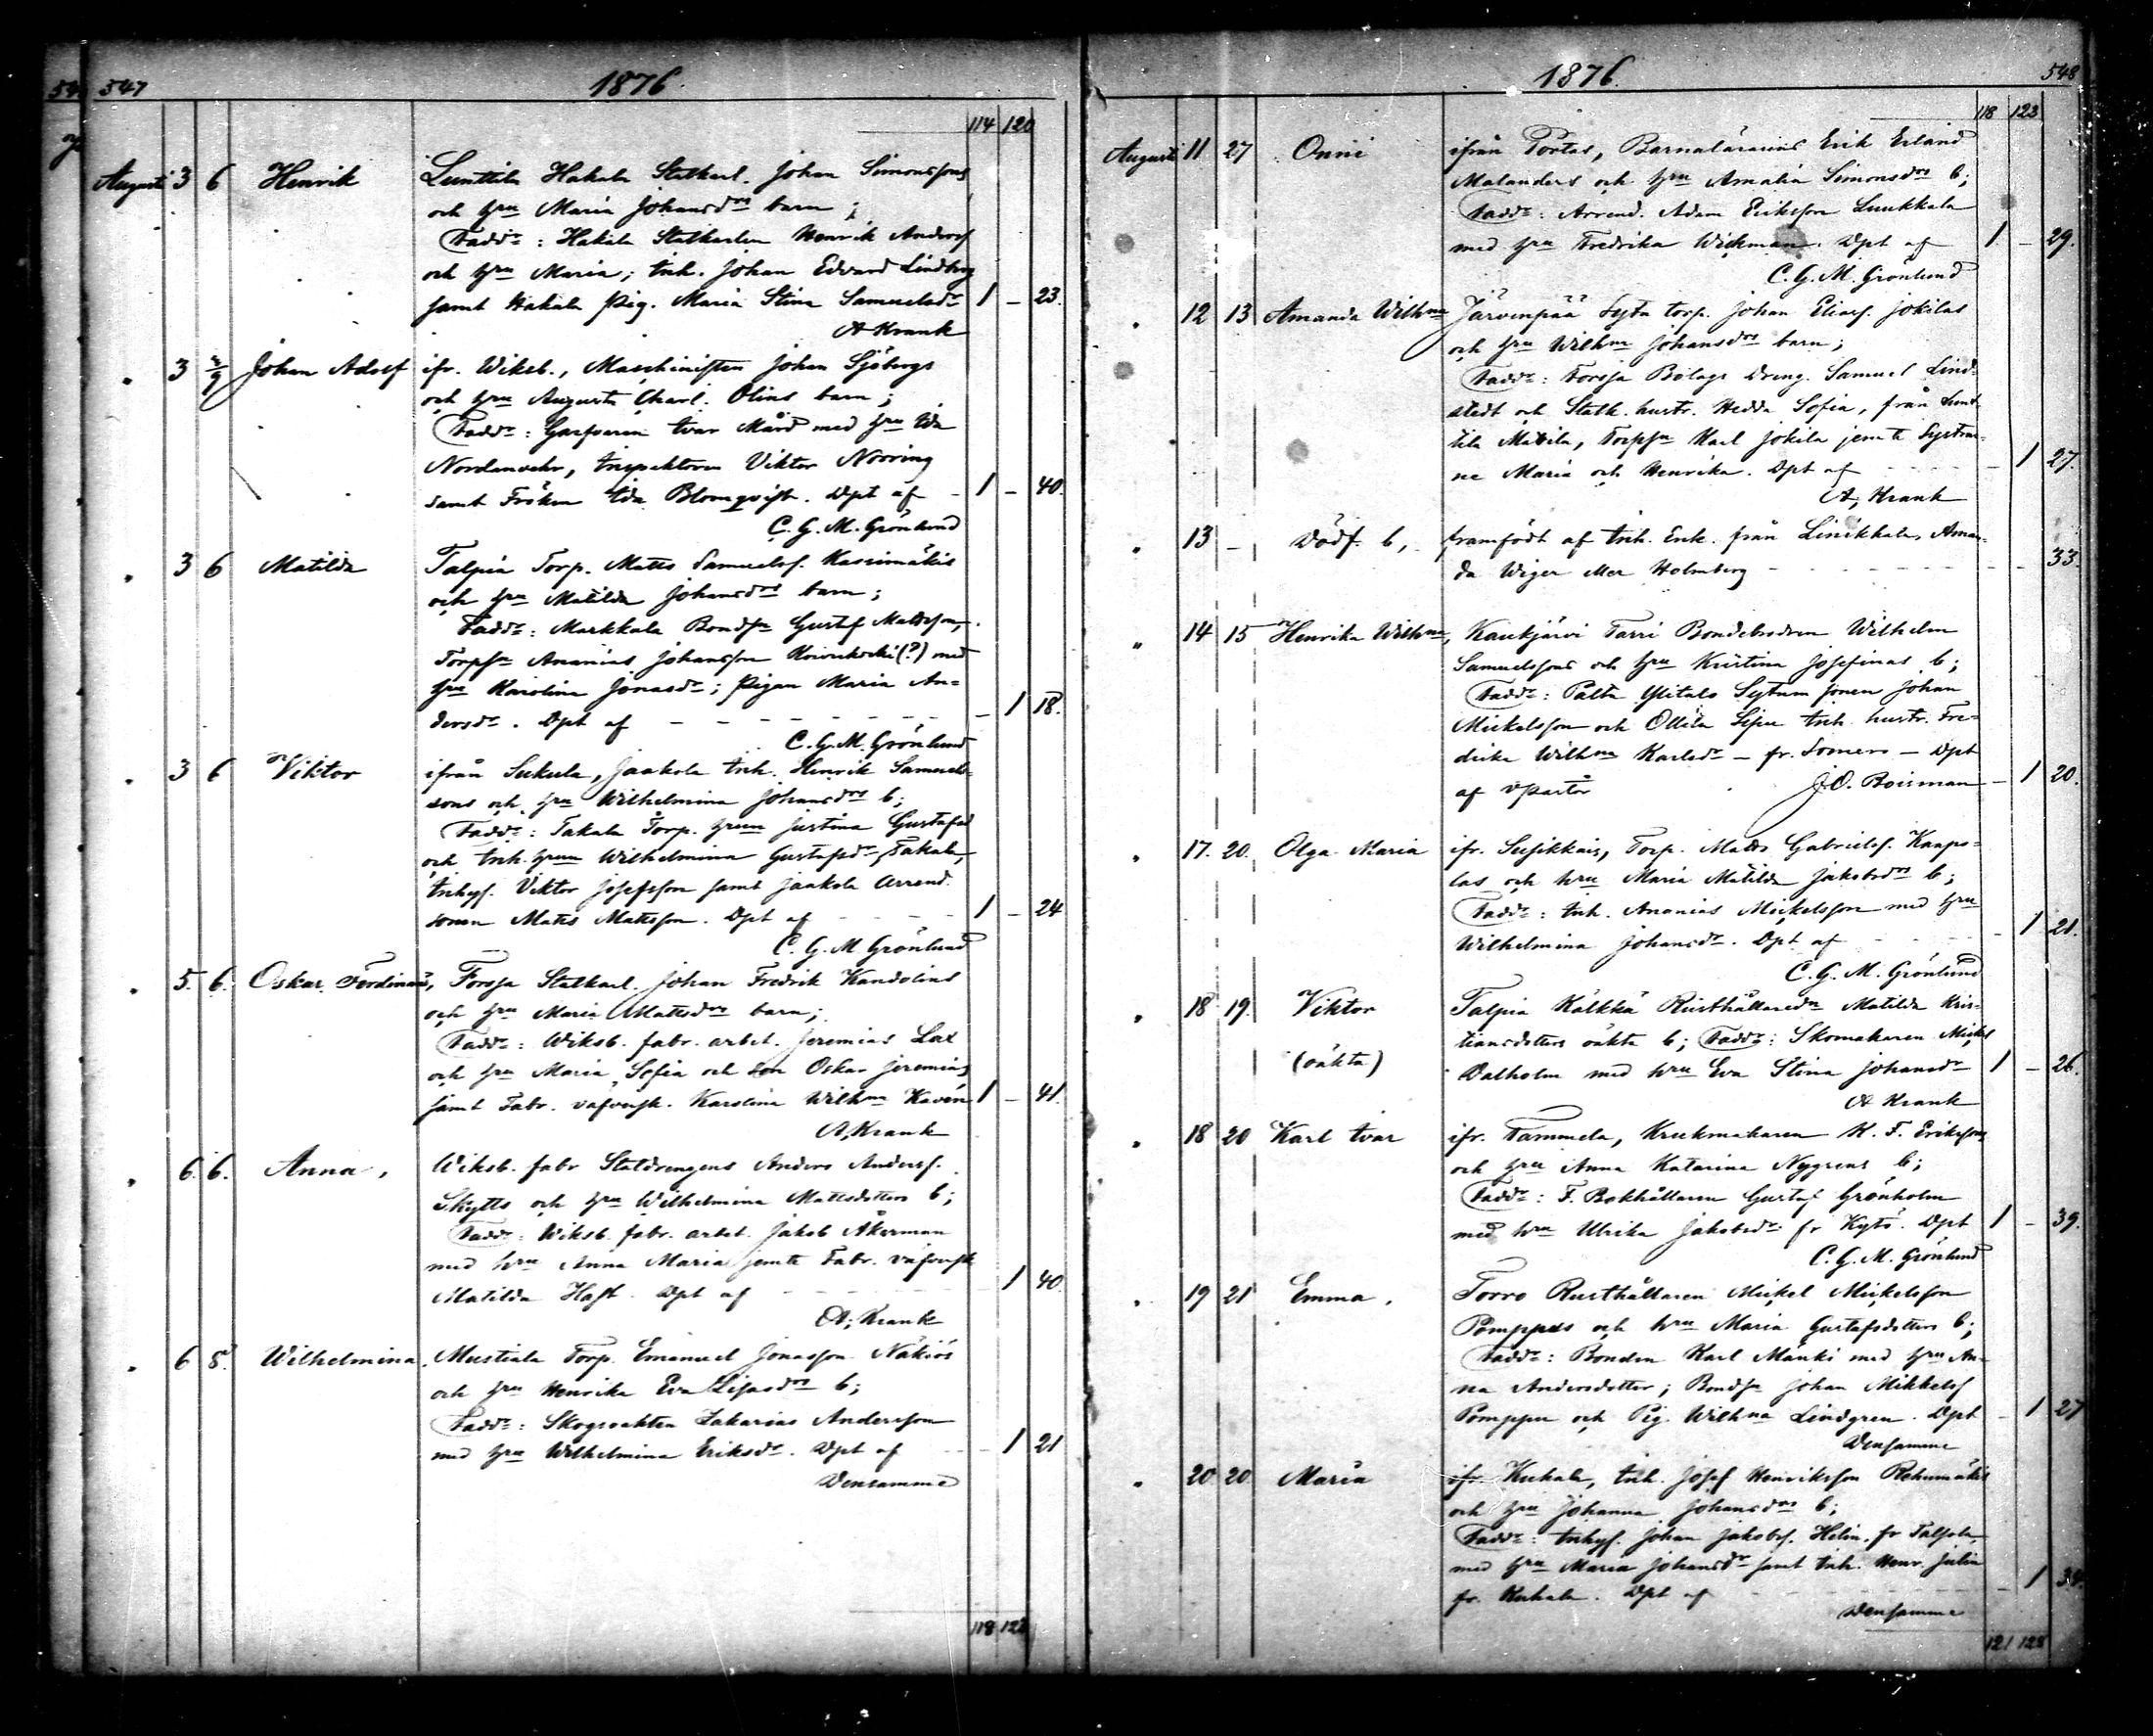 547
1876
114 120
Augusti 3 6 Henrik Lunttila Hakala Statkarl. Johan Simonssons
och hru Maria Johansdrs barn;
Faddr: Hakala Statkarlen Henrik Anderss
och hru Maria; Inh. Johan Edvard Lindberg
samt Hakala pig. Maria Stina Samuelsdr 1 – 23.
A Krank
" 3 2/9 Johan Adolf ifr. Wiksb., Maschinisten Johan Sjöbergs
och hru Augusta Charl. Olins barn;
Faddr: Garfvaren Ivar Mård med hru Ida
Nordanvehr, Inspektoren Viktor Nooring
samt Fröken Ida Blomqvist. Dpt af – 1 – 40.
C. G. M. Grönlund
" 3 6 Matilda Talpia Torp. Matts Samuelss. Kassimäkis
och hru Matilda Johansdrs barn;
Faddr: Markkula Bonds. Gustaf Mattsson,
Torps. Ananias Johansson Koivukoski(?) med
hru Karolina Jonasdr; pigan Maria An=
dersdr. Dpt af – – – – – 1 18.
C. G. M. Grönlund
" 3 6 Viktor ifrån Sukula, Jaakola Inh. Henrik Samuels=
sons och hru Wilhelmina Johansdrs b;
Faddr: Takala Torp. hrun Justina Gustafsd
och Inh. hrun Wilhelmina Gustafsdr, Takala,
Inhys. Viktor Josefsson samt Jaakola Arrend.
sonen Matts Mattsson. Dpt af – – – 1 – 24
C. G. M. Grönlund
" 5. 6. Oskar Ferdinand, Forssa Statkarl. Johan Fredrik Kandolins
och hru Maria Mattsdrs barn;
Faddr: Wiksb. fabr. arbet. Jeremias Lax
och hru Maria Sofia och son Oskar Jeremias
samt Fabr. väfversk. Karolina Wilhma Kavén 1 – 41.
A, Krank
" 6. 6. Anna, Wiksb. fabr Statdrengens Anders Anderss.
Skytts och hru Wilhelmina Mattsdotters b;
Faddr: Wiksb. fabr. arbet. Jakob Åkerman
med hru Anna Maria jemte Fabr. väfversk
Matilda Haft. Dpt af – – – – 1 40.
A, Krank
" 6 8. Wilhelmina, Mustiala Torp. Emanuel Jonasson Näkiös
och hru Henrika Eva Lisasdrs b;
Faddr: Skogsvakten Zakarias Andersson
med hru Wilhelmina Eriksdr. Dpt af – – 1 21
Densamme
118 123
1876.
548
118 123
Augusti 11 27 Onni ifrån Portas, Barnalärarens Erik Erland
Malanders och hru Amalia Simonsdrs b;
Faddr: Arrend. Adam Eriksson Luukkala
med hru Fredrika Wickman. Dpt af 1 – 29.
C. G. M. Grönlund
" 12 13 Amanda Wilhma Järvenpää Syta torp. Johan Eliass. Jokilas
och hru Wilhma Johansdrs barn;
Faddr: Forssa Bolags Dreng. Samuel Lind=
stedt och Statk. hustr. Hedda Sofia, från Lunt=
tila Mattila, Torps. Karl Jokila jemte Systrar=
ne Maria och Henrika. Dpt af – – – 1 27.
A, Krank
" 13 – Dödf. b, framfödt af Inh. Enk. från Linikkala, Aman=
da Wiger eller Holmberg – – – – – 33.
" 14 15 Henrika Wilhma, Kaukjärvi Tarri Bondebrodren Wilhelm
Samuelssons och hru Kristina Josefinas b;
Faddr: Palta Ylitalo Sytnm sonen Johan
Mickelsson och Ollila Sipu Inh. hustr. Fre=
drika Wilhma Karlsdr – fr. Somero – Dpt
af vPastor J. O. Boisman – 1 20.
" 17. 20. Olga Maria ifr. Susikkais, Torp. Matts Gabrielss. Kaapo=
las och hru Maria Matilda Jakobsdrs b;
Faddr: Inh. Ananias Mickelsson med hru
Wilhelmina Johansdr. Dpt af – – – 1 21.
C. G. M. Grönlund
" 18 19. Viktor Talpia Kälkkä Rusthållaredn Matilda Kris=
(oäkta) tiansdotters oäkta b; Faddr: Skomakaren Mickel
Dalholm med hru Eva Stina Johansdr 1 – 26.
A Krank
" 18 20 Karl Ivar ifr. Tammela, Krukmakaren K. F. Erikssons
och hru Anna Katarina Nygrens b;
Faddr: F. Bokhållaren Gustaf Grönholm
med hru Ulrika Jakobsdr fr Kytö. Dpt 1 – 39.
C. G. M. Grönlund
" 19 21 Emma, Torro Rusthållaren Mickel Mickelsson
Pomppus och hru Maria Gustafsdotters b;
Faddr: Bonden Karl Mänki med hru An=
na Andersdotter; Bonds. Johan Mikkelss
Pomppu och Pig. Wilhna Lindgren. Dpt – 1 27
Densamme
" 20 20. Maria ifr. Kuhala, Inh. Josef Henriksson Rehumäkis
och hru Johanna Johansdrs b;
Faddr: Inhys. Johan Jakobss. Helin fr Talpola,
med hru Maria Johansdr samt Inh. Henr. Julin
fr. Kuhala. Dpt af – – – – 1 34.
Densamme
121 128